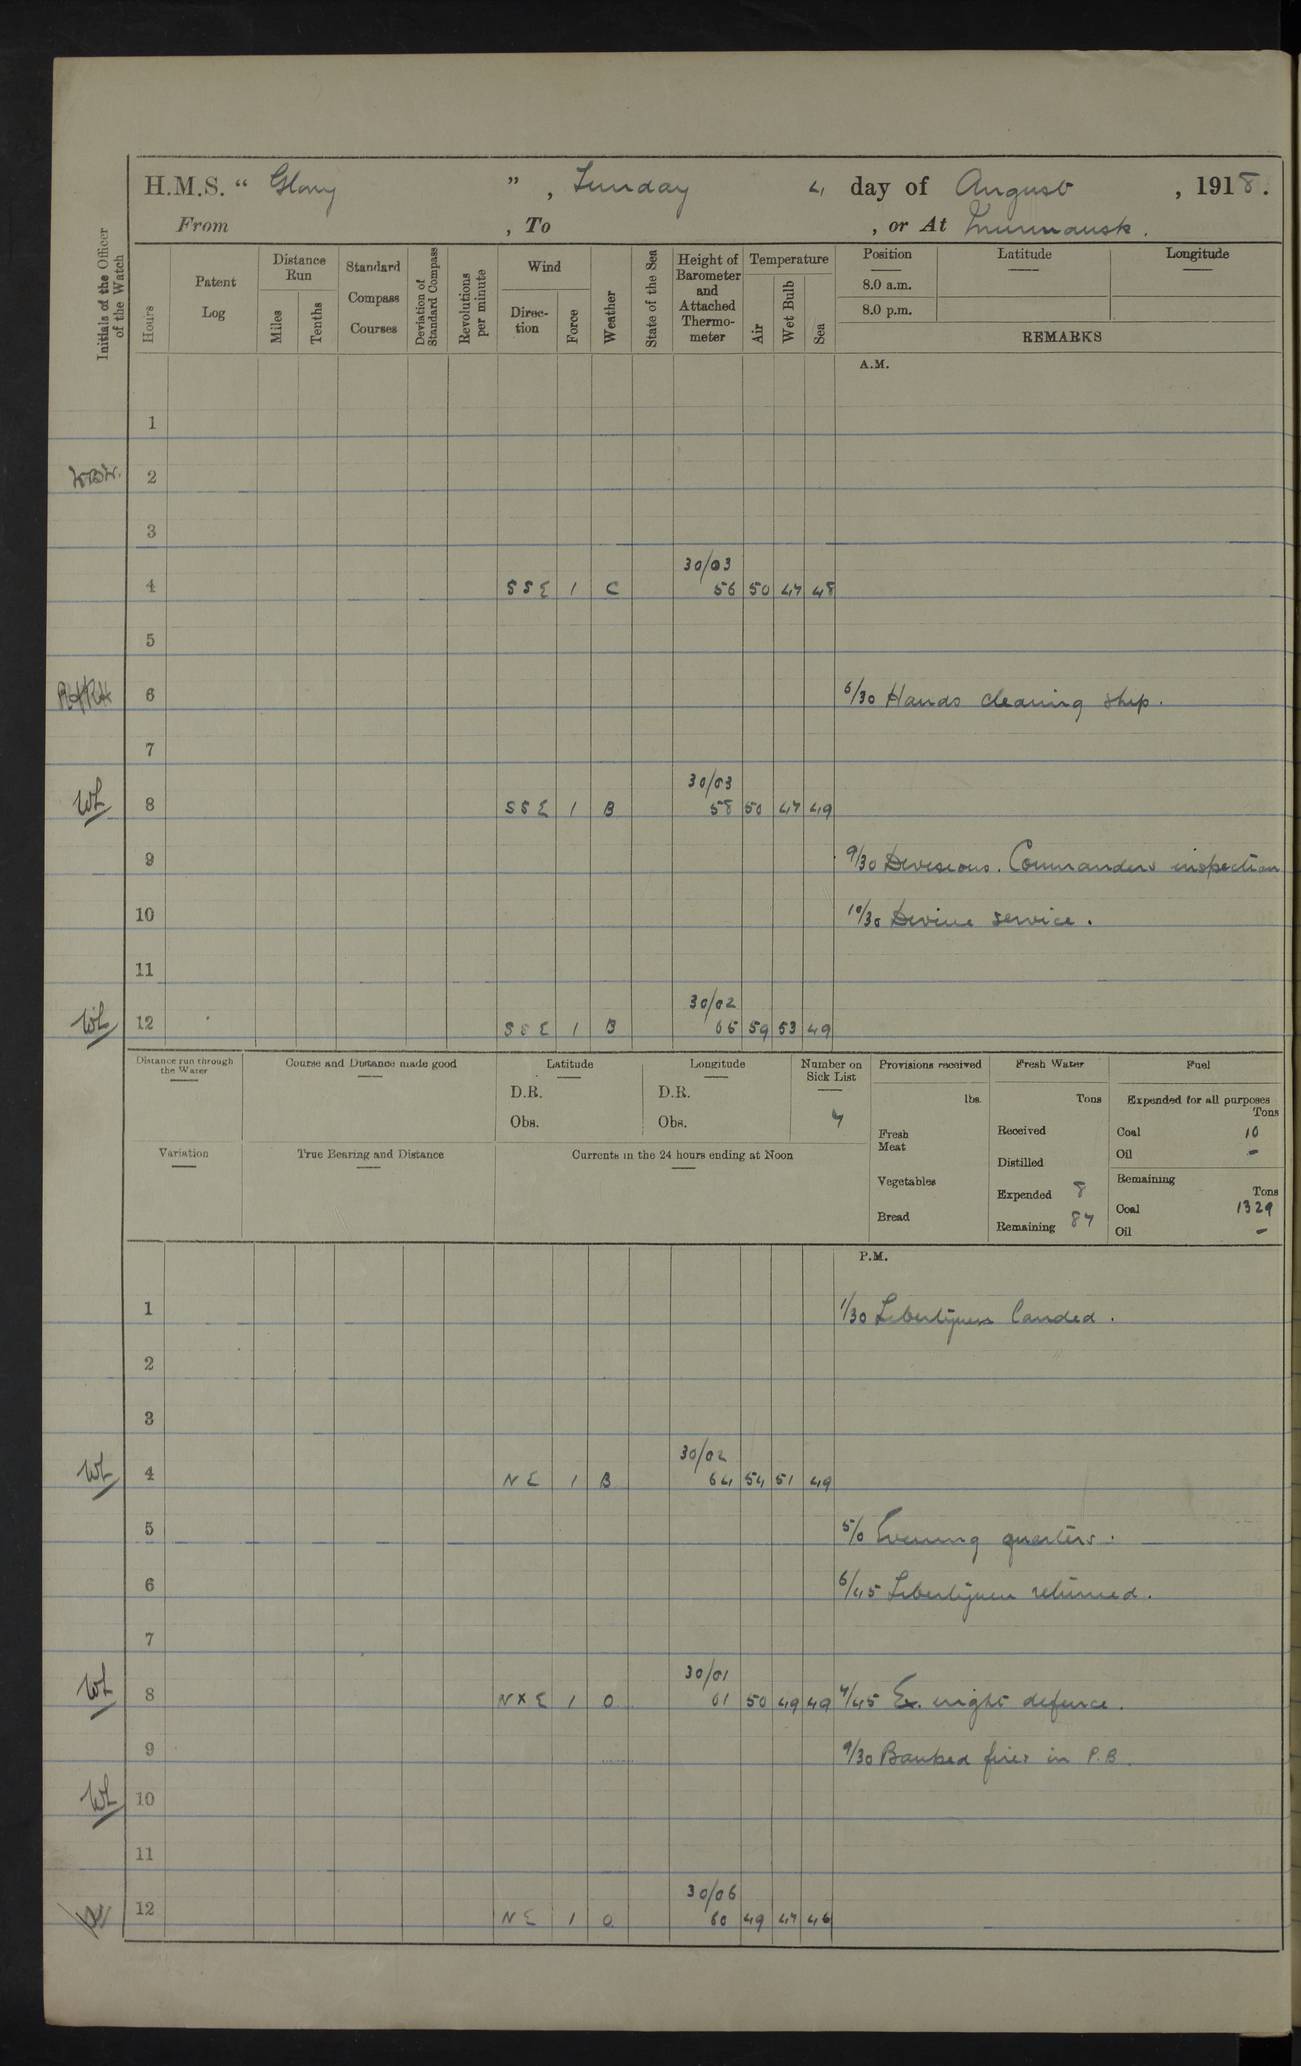 H.M.S. “ Glory ” , Sunday 4 day of August , 1918.
From , To , or At Murmansk.
Initials of the Officer of the Watch
Hours
Patent Log
Distance Run
Miles
Tenths
Standard Compass Courses
Deviation of Standard Compass
Revolutions per minute
Wind
Direction
Force
Weather
State of the Sea
Height of Barometer and Attached Thermometer
Temperature
Air
Wet Bulb
Sea
Position Latitude Longitude
8.0 a.m.
8.0 p.m.
REMARKS
A.M.
1
2
3
30/03
4 SSE 1 C 56 50 47 48
5
6 6/30 Hands cleaning ship.
7
30/03
WL 8 SSE 1 B 58 50 47 49
9 9/30 Divisions. Commanders inspection
10 10/30 Devine service.
11
30/02
WL 12 SSE 1 B 65 59 53 49
Distance run through the Water
Course and Distance made good
Latitude
D.R.
Obs.
Longitude
D.R.
Obs.
Number on Sick List
7
Provisions received
lbs.
Fresh Meat
Vegetables
Bread
Fresh Water
Tons
Received
Distilled
Expended 8
Remaining 87
Fuel
Expended for all purposes
Tons
Coal 10
Oil -
Remaining
Tons
Coal 1329
Oil -
Variation
True Bearing and Distance
Currents in the 24 hours ending at Noon
P.M.
1 1/30 Libertymen landed.
2
3
30/02
WL 4 NE 1 B 64 54 51 49
5 5/0 Evening quarters.
6 6/45 Libertymen returned.
7
30/01
WL 8 NXE 1 O 61 50 49 49 7/45 Ex. night defence.
9 9/30 Banked fires in P.B.
WL 10
11
30/06
12 NE 1 O 60 49 47 46